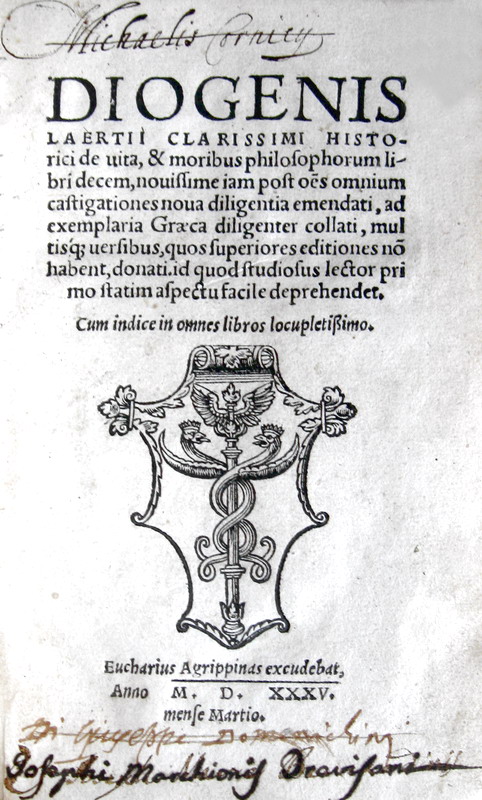 Michaelis Cornicy
DIOGENIS
LAERTII CLARISSIMI HISTO-
rici de uita, & moribus philosophorum li-
bri decem, nouissime iam post oẽs omnium
castigationes noua diligentia emendati, ad
exemplaria Græca diligenter collati, mul
tisq; uersibus, quos superiores editiones nõ
habent, donati. id quod studiosus lector pri
mo statim aspectu facile deprehendet.
Cum indice in omnes libros locupletißimo.
Eucharius Agrippinas excudebat,
Anno M. D. XXXV.
mense Martio.
Di Giuseppe Domenichini
Josephi Marchionis Dravisani